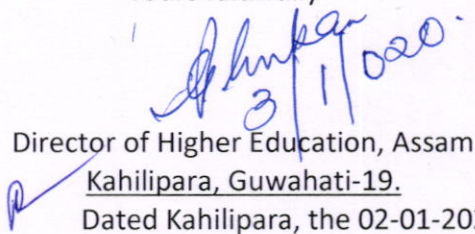 3/1/020
Director of Higher Education, Assam
Kahilipara, Guwahati-19.
Dated Kahilipara, the 02-01-20